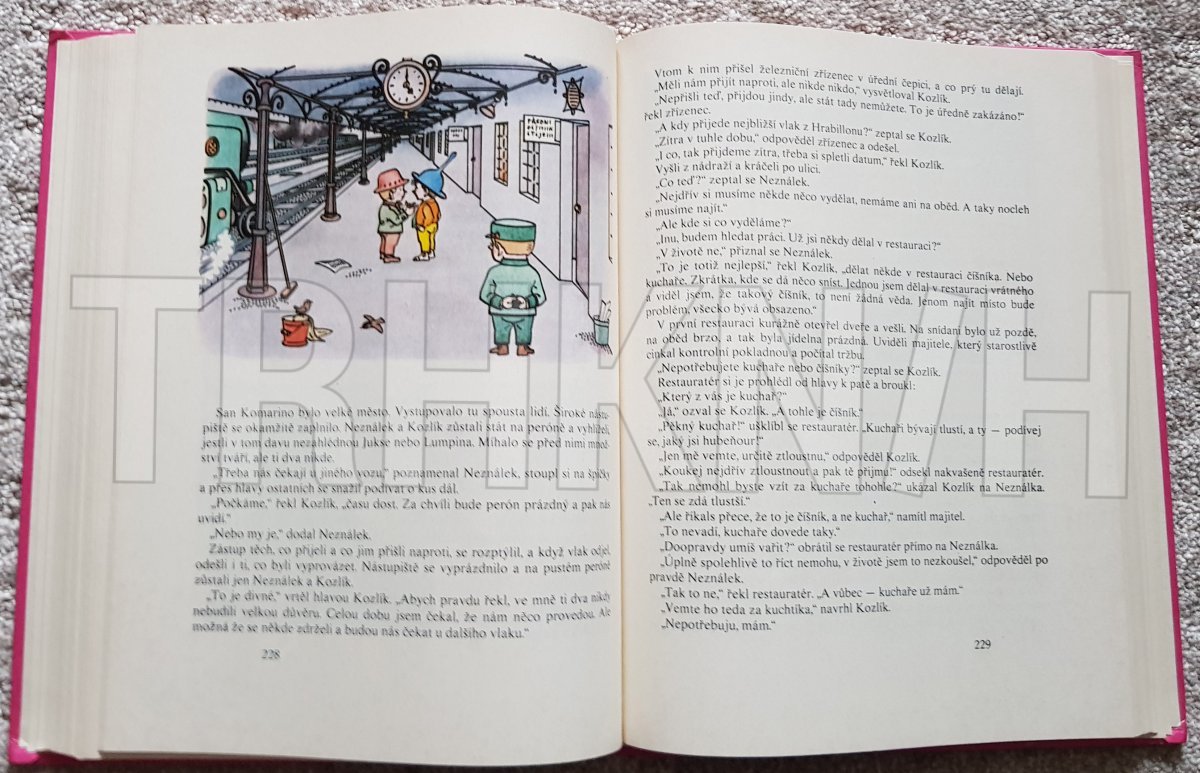 San Komarino bylo velké město. Vystupovalo tu spousta lidí. Široké nástu-
piště se okamžitě zaplnilo. Neználek a Kozlík zůstali stát na peróně a vyhlíželi,
jestli v tom davu nezahlédnou Jukse nebo Lumpina. Míhalo se před nimi množ-
ství tváří, ale ti dva nikde.
„Třeba nás čekají u jiného vozu,“ poznamenal Neználek, stoupl si na špičky
a přes hlavy ostatních se snažil podívat o kus dál.
„Počkáme,“ řekl Kozlík, „času dost. Za chvíli bude perón prázdný a pak nás
uvidí.“
„Nebo my je,“ dodal Neználek.
Zástup těch, co přijeli a co jim přišli naproti, se rozptýlil, a když vlak odjel,
odešli i ti, co byli vyprovázet. Nástupiště se vyprázdnilo a na pustém peróně
zůstali jen Neználek a Kozlík.
„To je divné,“ vrtěl hlavou Kozlík. „Abych pravdu řekl, ve mně ti dva nikdy
nebudili velkou důvěru. Celou dobu jsem čekal, že nám něco provedou. Ale
možná že se někde zdrželi a budou nás čekat u dalšího vlaku.“
228
Vtom k nim přišel železniční zřízenec v úřední čepici, a co prý tu dělají.
„Měli nám přijít naproti, ale nikde nikdo,“ vysvětloval Kozlík.
„Nepřišli teď, přijdou jindy, ale stát tady nemůžete. To je úředně zakázáno!“
řekl zřízenec.
„A kdy přijede nejbližší vlak z Hrabillonu?“ zeptal se Kozlík.
„Zítra v tuhle dobu,“ odpověděl zřízenec a odešel.
„I co, tak přijdeme zítra, třeba si spletli datum,“ řekl Kozlík.
Vyšli z nádraží a kráčeli po ulici.
„Co teď?“ zeptal se Neználek.
„Nejdřív si musíme někde něco vydělat, nemáme ani na oběd. A taky nocleh
si musíme najít.“
„Ale kde si co vyděláme?“
„Inu, budem hledat práci. Už jsi někdy dělal v restauraci?“
„V životě ne,“ přiznal se Neználek.
„To je totiž nejlepší,“ řekl Kozlík, „dělat někde v restauraci číšníka. Nebo
kuchaře. Zkrátka, kde se dá něco sníst. Jednou jsem dělal v restauraci vrátného
a viděl jsem, že takový číšník, to není žádná věda. Jenom najít místo bude
problém, všecko bývá obsazeno.“
V první restauraci kurážně otevřel dveře a vešli. Na snídani bylo už pozdě,
na oběd brzo, a tak byla jídelna prázdná. Uviděli majitele, který starostlivě
cinkal kontrolní pokladnou a počítal tržbu.
„Nepotřebujete kuchaře nebo číšníky?“ zeptal se Kozlík.
Restauratér si je prohlédl od hlavy k patě a broukl:
„Který z vás je kuchař?“
„Já,“ ozval se Kozlík. „A tohle je číšník.“
„Pěkný kuchař!“ ušklíbl se restauratér. „Kuchaři bývají tlustí, a ty — podívej
se, jaký jsi hubeňour!“
„Jen mě vemte, určitě ztloustnu,“ odpověděl Kozlík.
„Koukej nejdřív ztloustnout a pak tě přijmu!“ odsekl nakvašeně restauratér.
„Tak nemohl byste vzít za kuchaře tohohle?“ ukázal Kozlík na Neználka.
„Ten se zdá tlustší.“
„Ale říkals přece, že to je číšník, a ne kuchař,“ namítl majitel.
„To nevadí, kuchaře dovede taky.“
„Doopravdy umíš vařit?“ obrátil se restauratér přímo na Neználka.
„Úplně spolehlivě to říct nemohu, v životě jsem to nezkoušel,“ odpověděl po
pravdě Neználek.
„Tak to ne,“ řekl restauratér. „A vůbec — kuchaře už mám.“
„Vemte ho teda za kuchtíka,“ navrhl Kozlík.
„Nepotřebuju, mám.“
229